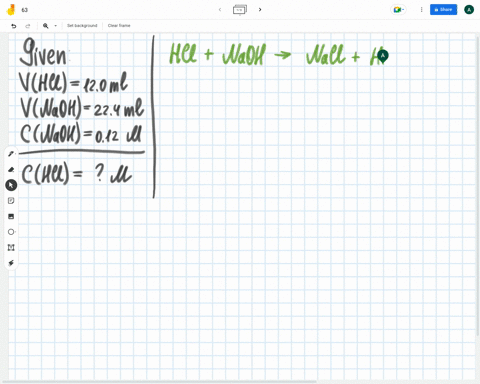 63
Share
A
Set background
Clear frame
Given
V(HCl) = 12.0 ml
V(NaOH) = 22.4 ml
C(NaOH) = 0.12 M
C(HCl) = ? M
HCl + NaOH → NaCl + H
A